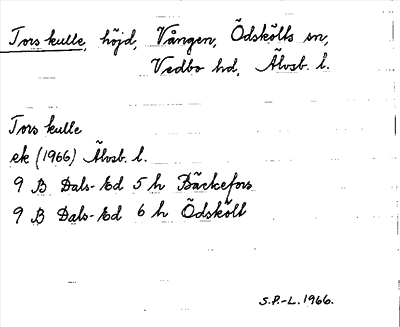 Tors kulle, höjd, Vången, Ödskölts sn,
Vedbo hd, Älvsb. l.
Tors kulle
ek (1966) Älvsb. l.
9 B Dals-Ed 5 h Bäckefors
9 B Dals-Ed 6 h Ödskölt
S.P.-L. 1966.